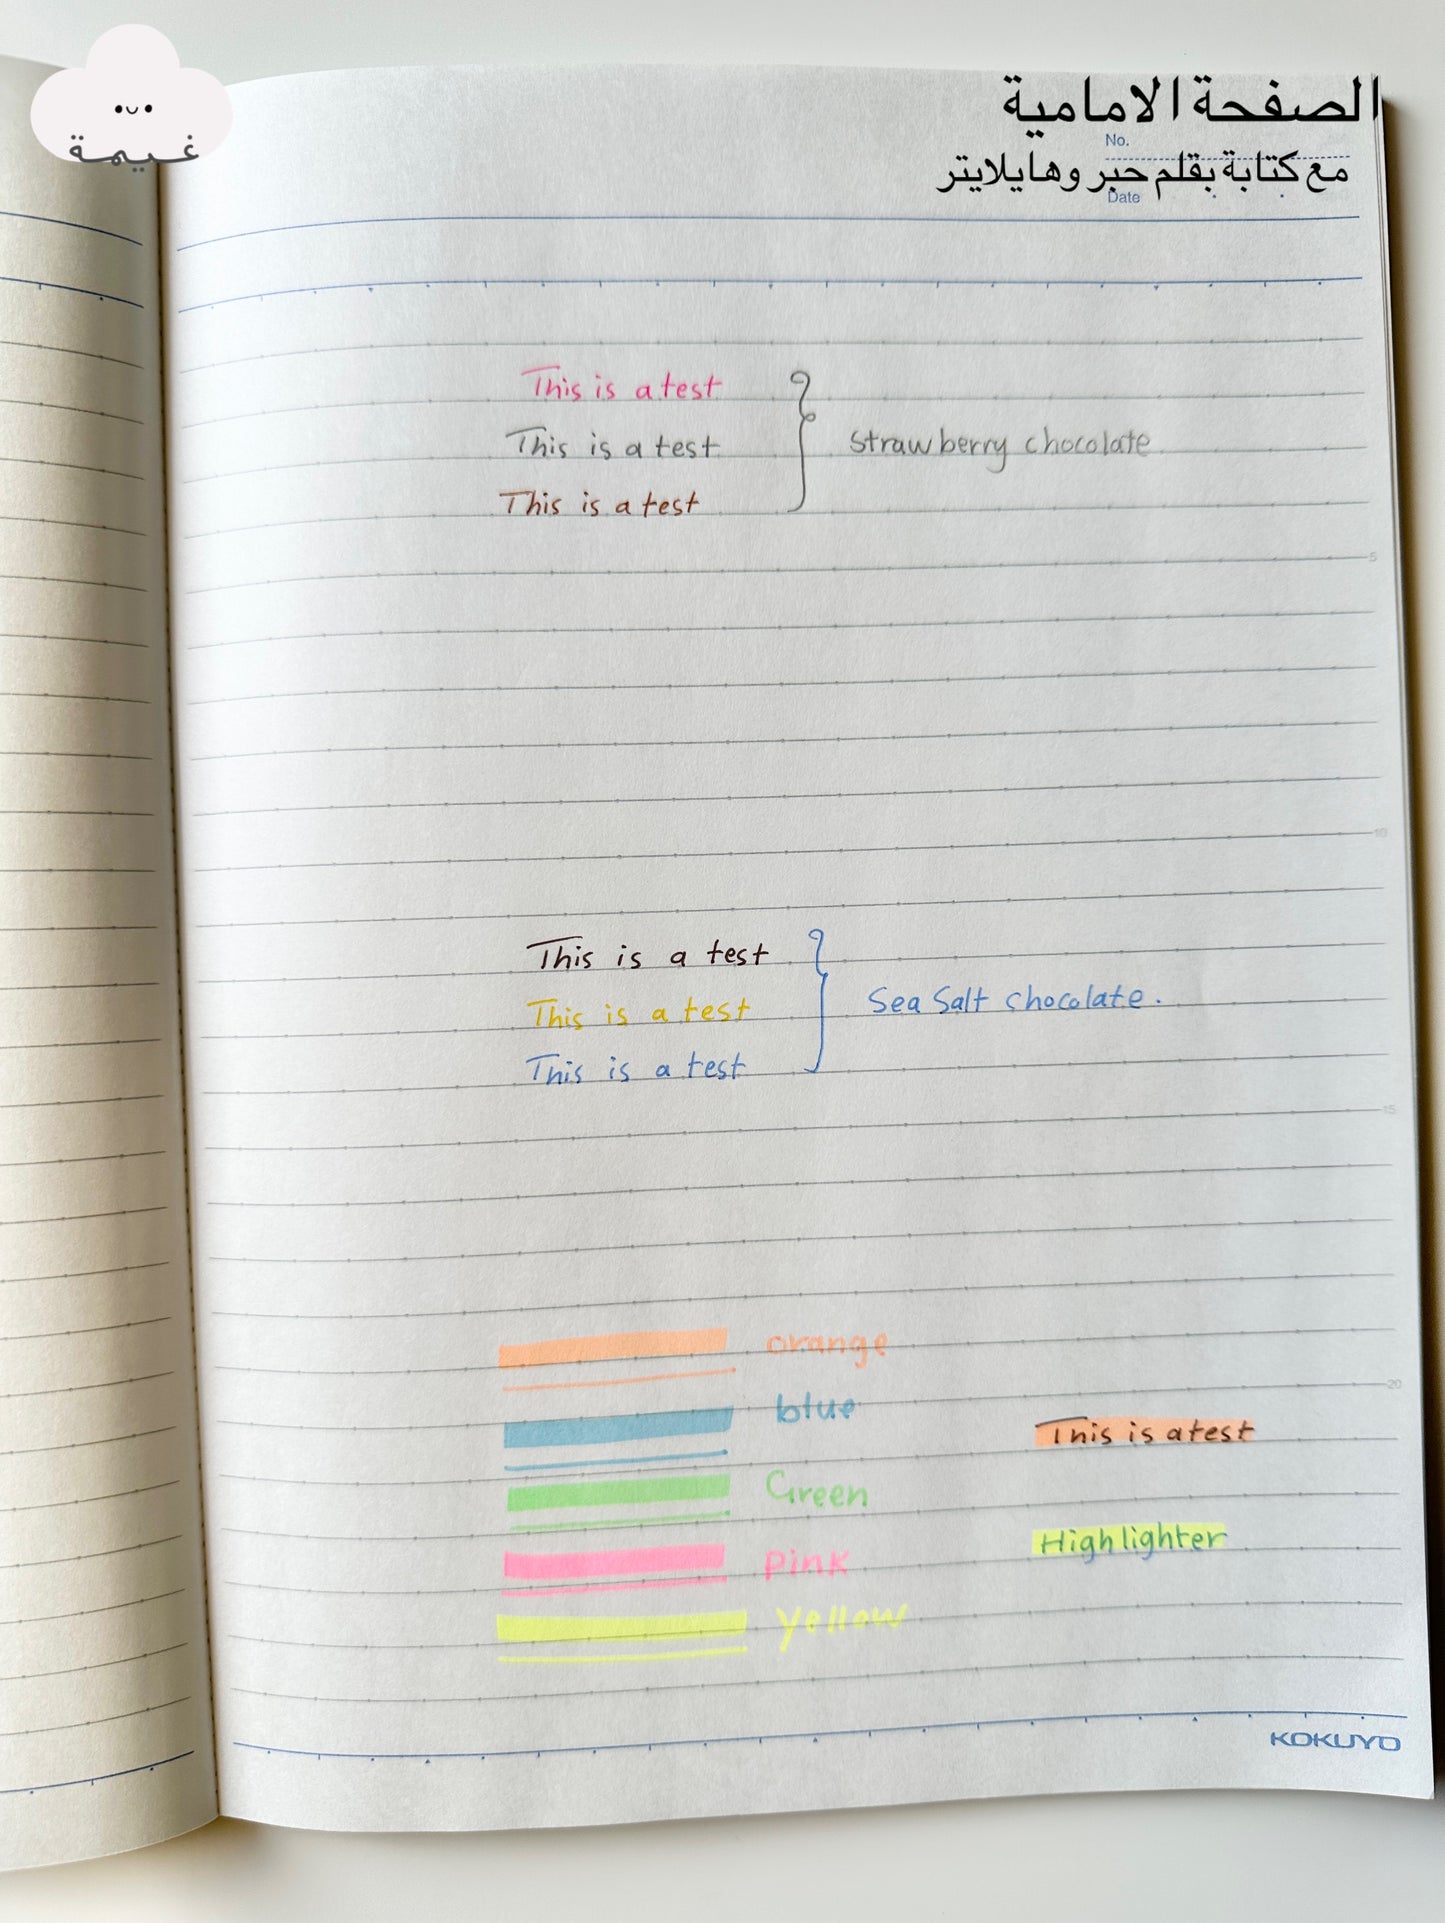 غيمة
الصفحة الامامية
No.
مع كتابة بقلم حبر وهايلايتر
Date
This is a test
This is a test
strawberry chocolate
This is a test
5
10
This is a test
This is a test
Sea Salt chocolate.
This is a test
15
orange
20
blue
This is a test
Green
Highlighter
pink
yellow
KOKUYO